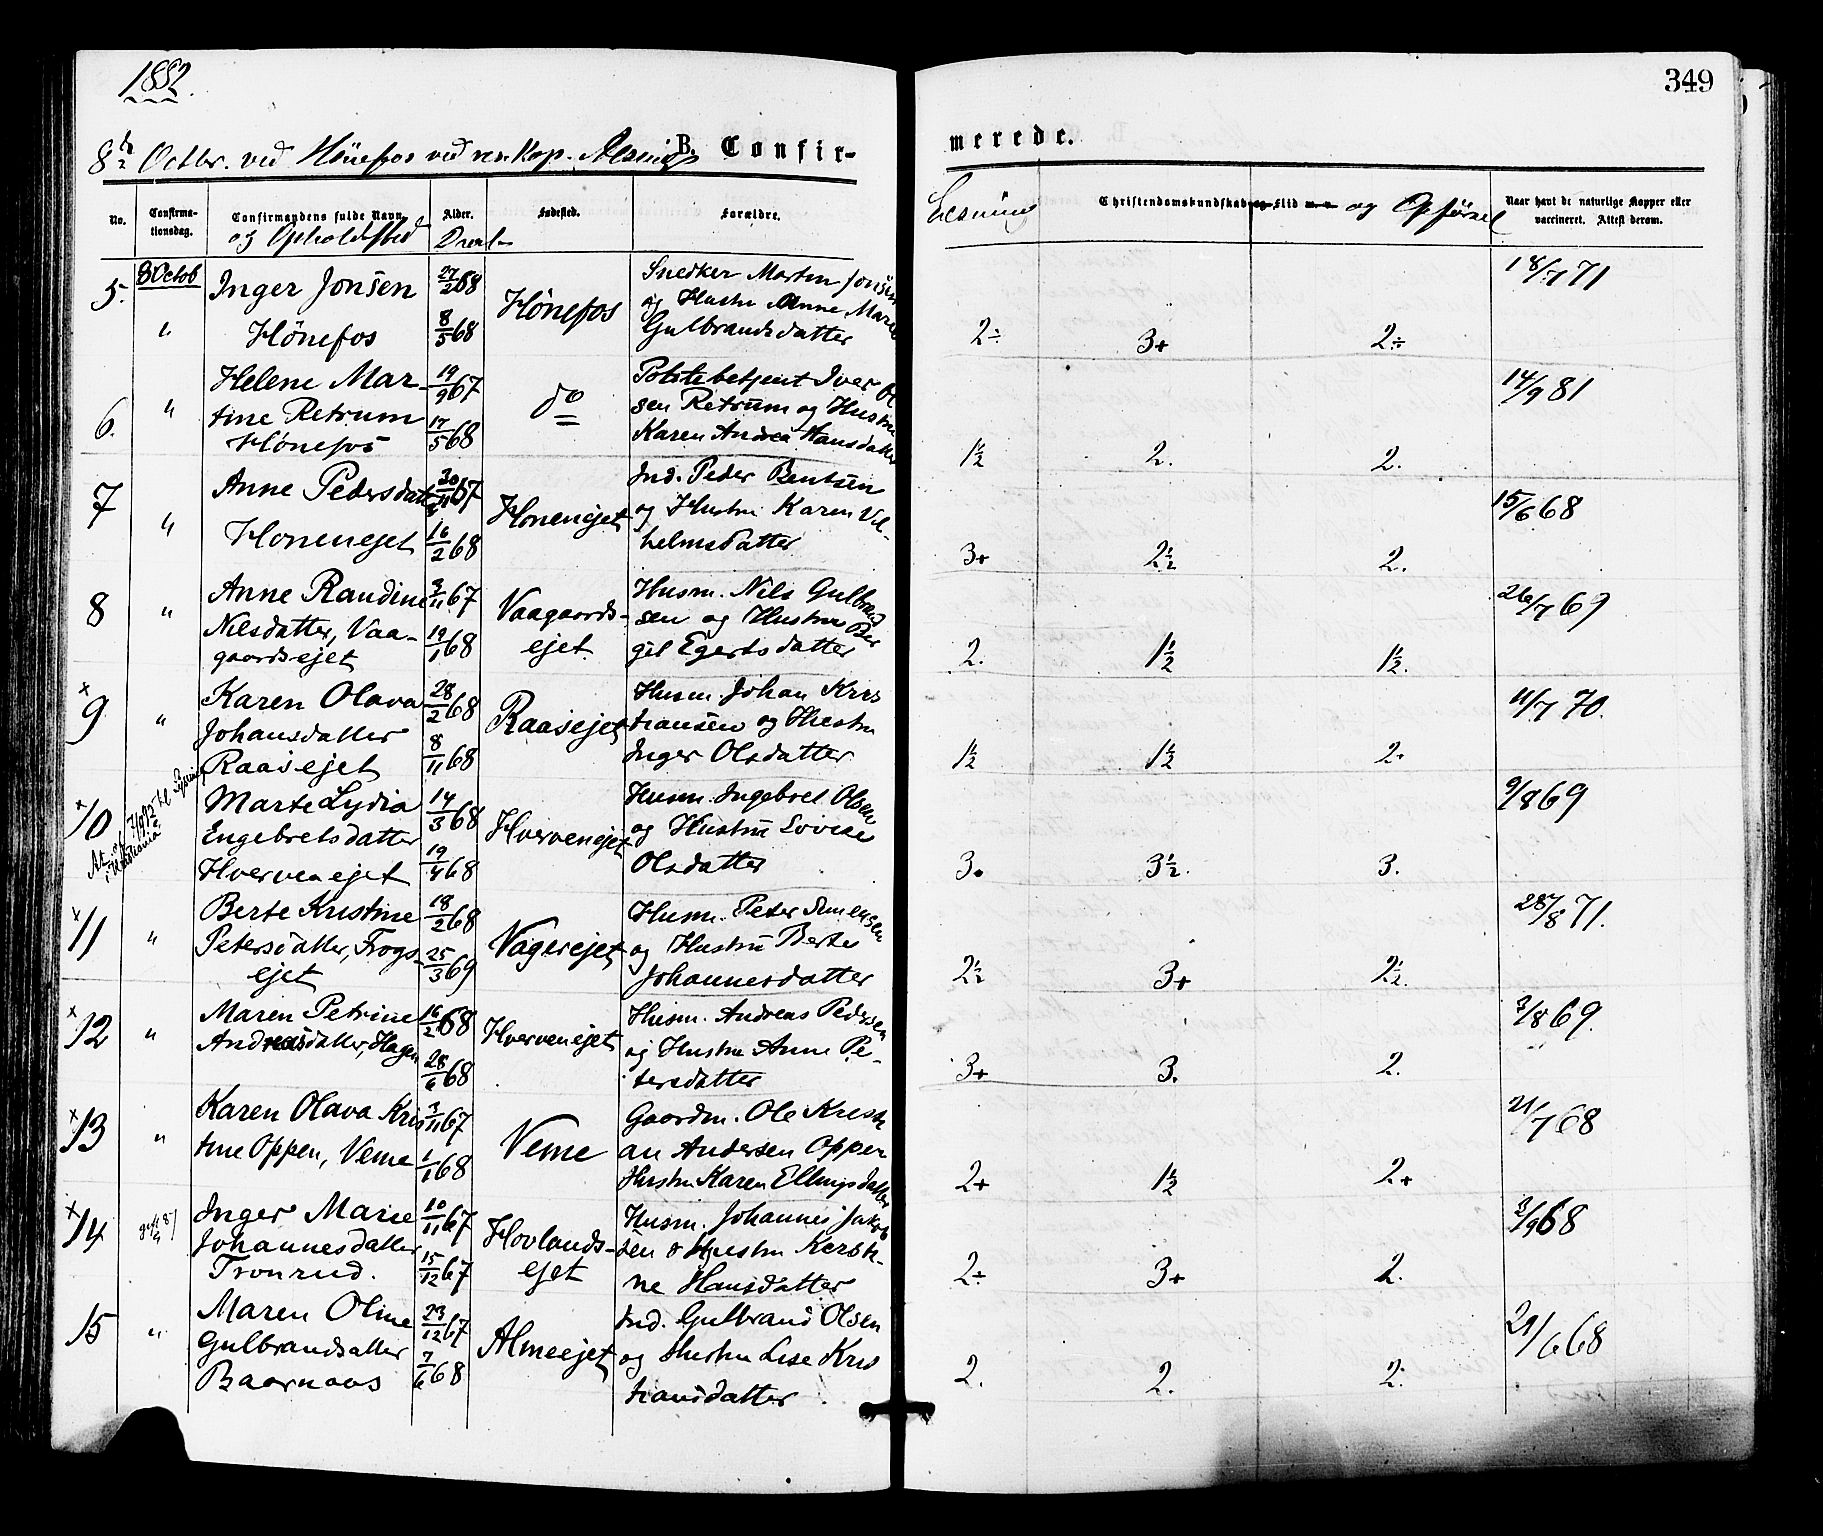 1882.
349
8 Octbr. ved Hönefos ved res. Kap.
B. Confir-
merede.
No.
Confirma-
tionsdag.
Confirmandens fulde Navn
og Opholdssted
Alder.
Fødested.
Forældre.
Læsning
Christendomskundskab og Flid m. v. og Opførsel
Naar havt de naturlige Kopper eller
vaccineret. Attest derom.
5. 8 Octob Inger Jonsen 27/2 68 Hönefos Snedker Martin Jonsen
og Hustru Anne Marie
" Hönefos 8/5 68 Gulbrandsdatter
2÷ 3+ 2÷ 18/7 71
6. " Helene Mar- 19/9 67 do Politibetjent Iver Ol
tine Retrum 17/5 68 sen Retrum og Hustru
Hönefos Karen Andrea Hansdatter
1½ 2. 2. 14/9 81
7 " Anne Pedersdatter 20/11 67 Hönenejet Ind. Peder Bentsen
og Hustru Karen Vil-
Hönenejet 16/2 68 helmsdatter
3+ 2½ 2. 15/6 68
8 " Anne Randine 3/11 67 Vaagaards- Husm. Nils Gulbrand
Nilsdatter, Vaa- 19/1 68 ejet. sen og Hustru Ber
gaardsejet git Egertsdatter
2. 1½ 1½. 26/7 69
× 9 " Karen Olava 28/2 68 Raasejet Husm. Johan Kris
Johansdatter 8/11 68 tiansen og Hustru
Raasejet Inger Olsdatter
1½ 1½ 2. 11/7 70.
× 10 Marte Lydia 14/3 68 Hvervenejet Husm. Ingebret Olsen
Engebretsdatter og Hustru Lovise
Hvervenejet 19/4 68 Olsdatter
3. 3½. 3. 9/8 69
× 11 " Berte Kristine 18/2 68 Vagerejet Husm. Peter Simensen
Petersdatter, Frogs- 25/3 69 og Hustru Berte
ejet Johannesdatter
2½ 3+ 2½. 28/8 71.
× 12 " Maren Petrine 16/2 68 Hvervenejet Husm. Andreas Pedersen
Andreasdatter, Hagen og Hustru Anne Pe-
28/6 68 tersdatter
3+ 3. 2. 3/8 69.
× 13 " Karen Olava Kris 3/11 67 Veme Gaardm. Ole Kristi
tine Oppen, Veme 1/1 68 an Andersen Oppen
Hustru Karen Ellingsdatter
2+ 1½ 2+ 21/7 68
× 14 Inger Marie 10/11 67 Hovlands- Husm. Johannes Jakob
Johannesdatter ejet sen & Hustru Kersti-
Tronrud. 15/12 67 ne Hansdatter
2÷ 3+ 2. 3/9 68
15 " Maren Oline 23/12 67 Almeejet Ind. Gulbrand Olsen
Gulbrandsatter 7/6 68 og Hustru Lise Kris
Baarnaas tiansdatter
2. 2. 2. 21/6 68